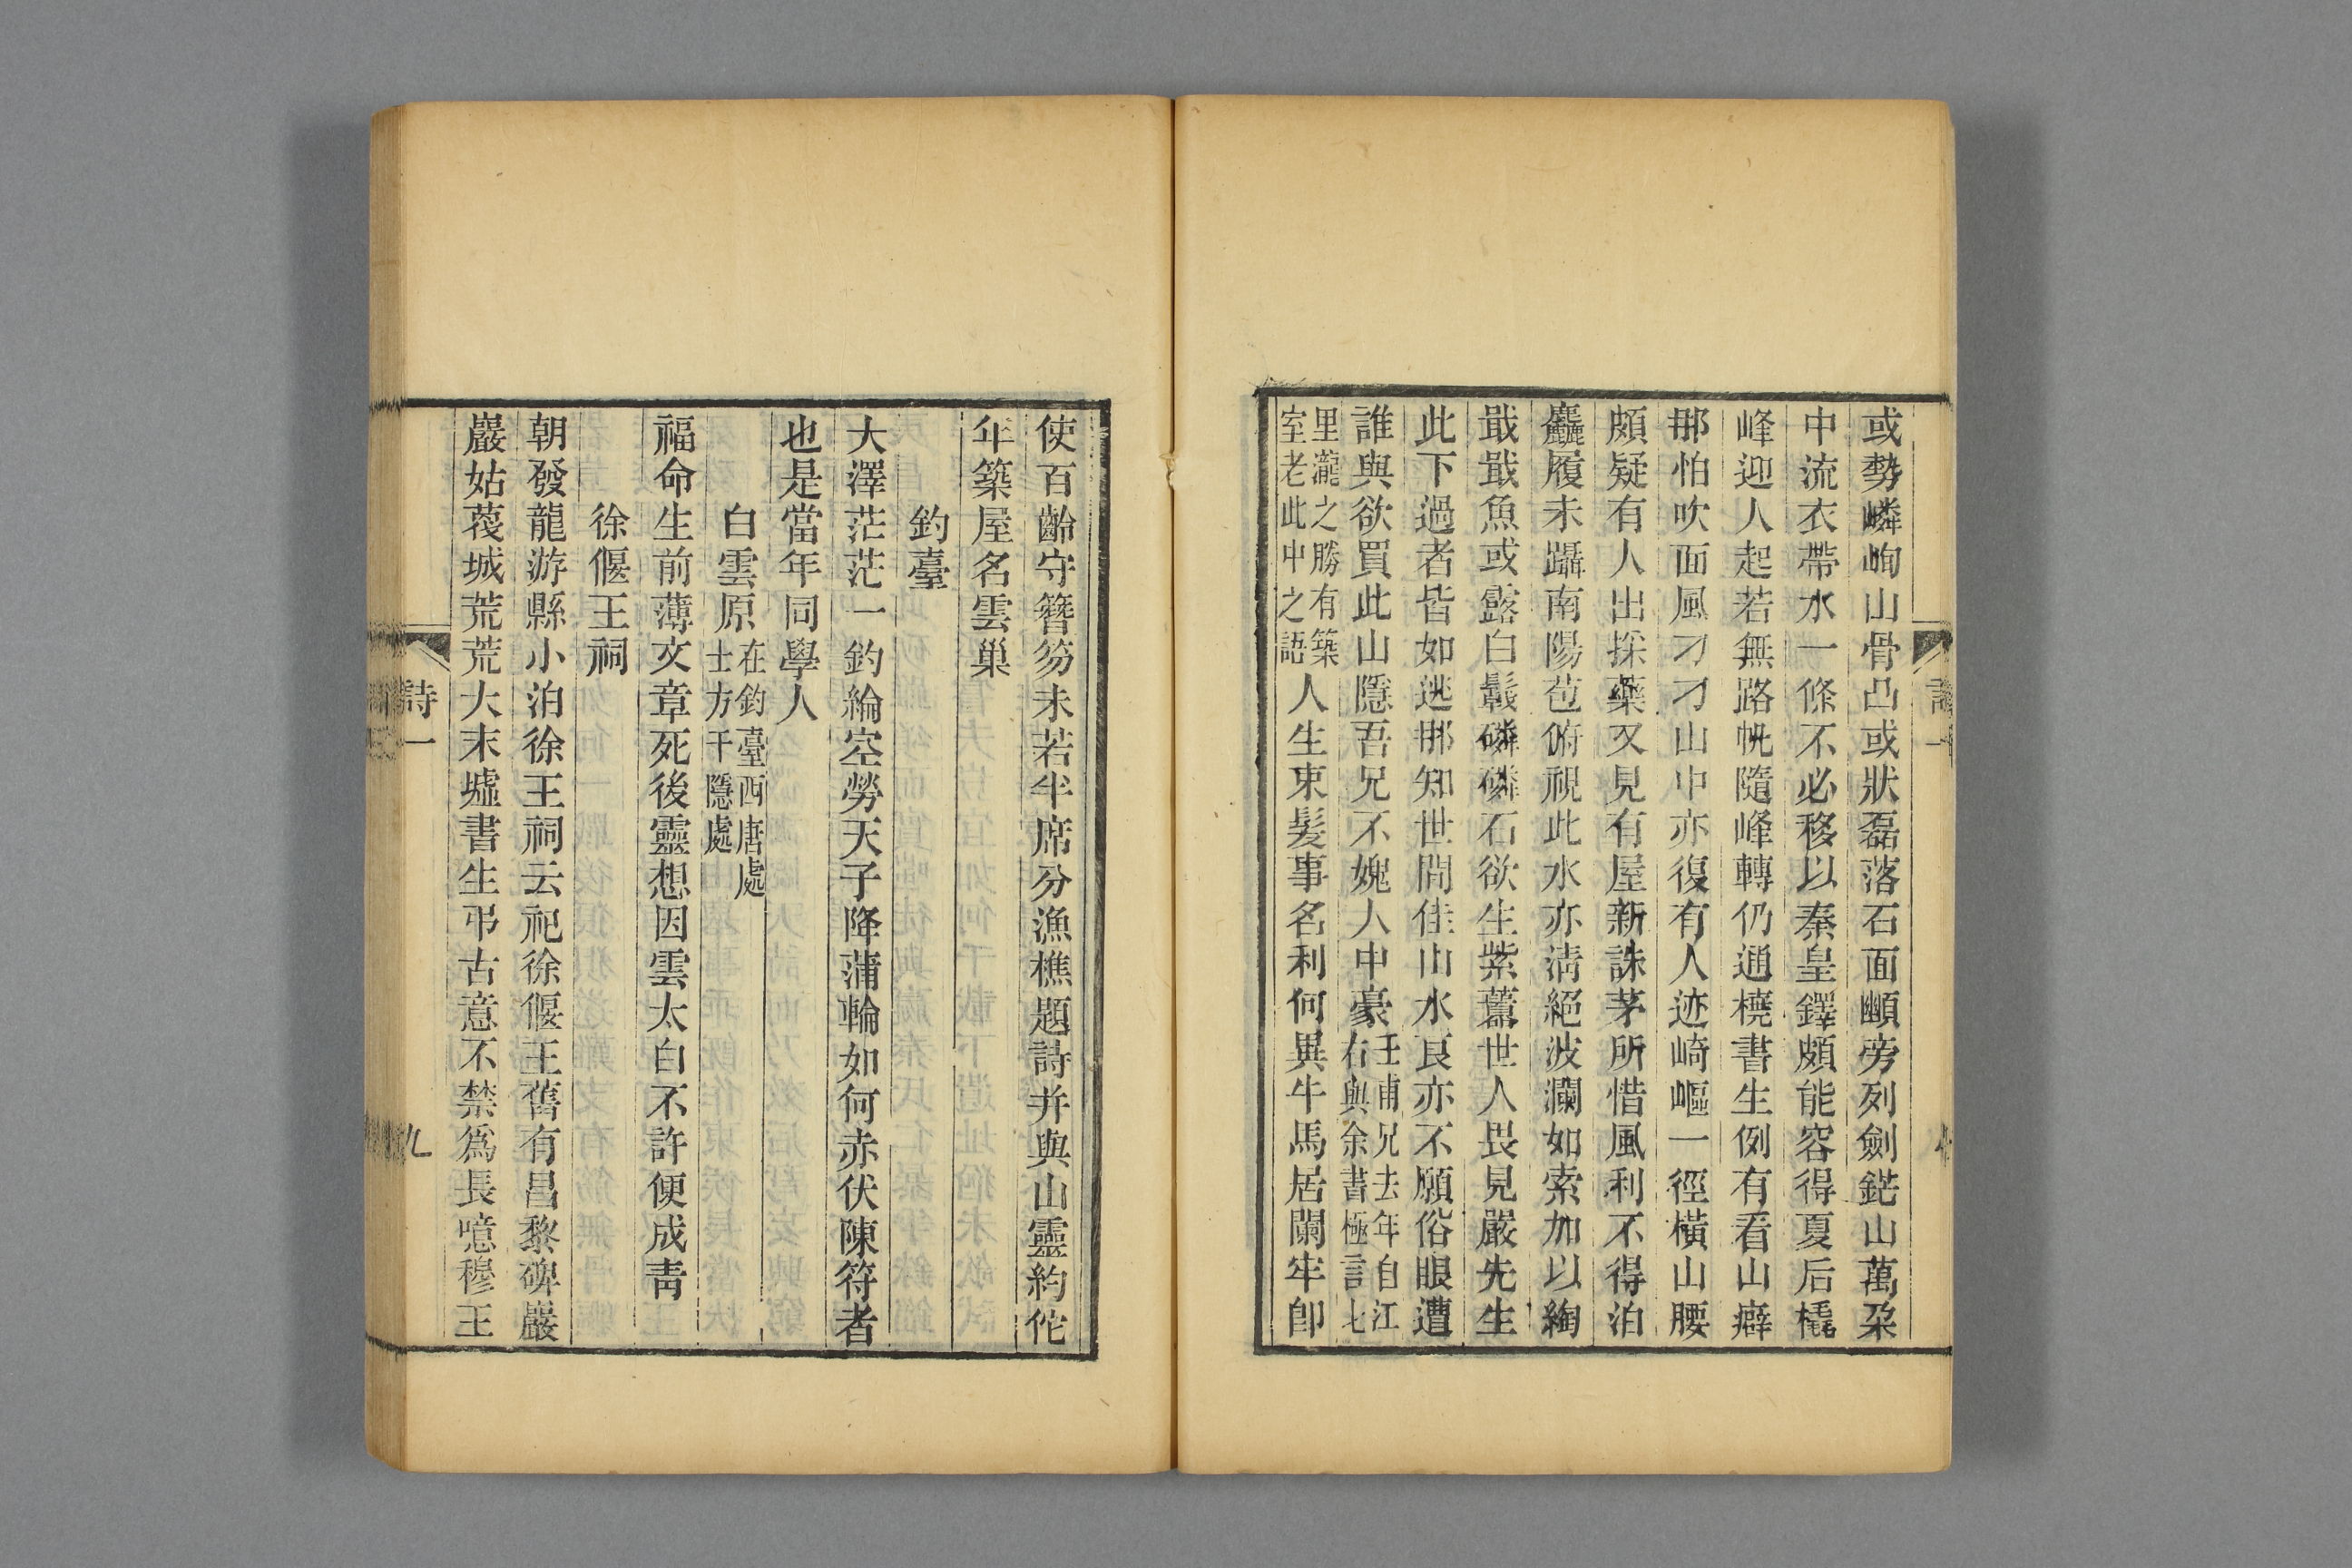 或勢嶙峋山骨凸或狀磊落石面顱旁列劍鋩山萬朶
中流衣帶水一條不必移以秦皇鐸頗能容得夏后橇
峰迎人起若無路帆隨峰轉仍通橈書生例有看山癖
那怕吹面風刁刁山中亦復有人迹崎嶇一徑橫山腰
頗疑有人出採藥又見有屋新誅茅所惜風利不得泊
麤履未躡南陽苞俯視此水亦清絕波瀾如索加以綯
戢戢魚或露白鬛磷磷石欲生紫藨世人畏見嚴先生
此下過者皆如逃那知世間佳山水良亦不願俗眼遭
誰與欲買此山隱吾兄不媿人中豪壬甫兄去年自江
右與余書極言七
里瀧之勝有築
室老此中之語人生束髮事名利何異牛馬居闌牢卽
使百齡守簪笏未若半席分漁樵題詩并與山靈約佗
年築屋名雲巢
釣臺
大澤茫茫一釣綸空勞天子降蒲輪如何赤伏陳符者
也是當年同學人
白雲原在釣臺西唐處
士方干隱處
福命生前薄文章死後靈想因雲太白不許便成靑
徐偃王祠
朝發龍游縣小泊徐王祠云祀徐偃王舊有昌黎碑巖
巖姑蔑城荒荒大末墟書生弔古意不禁爲長噫穆王
詩一
九